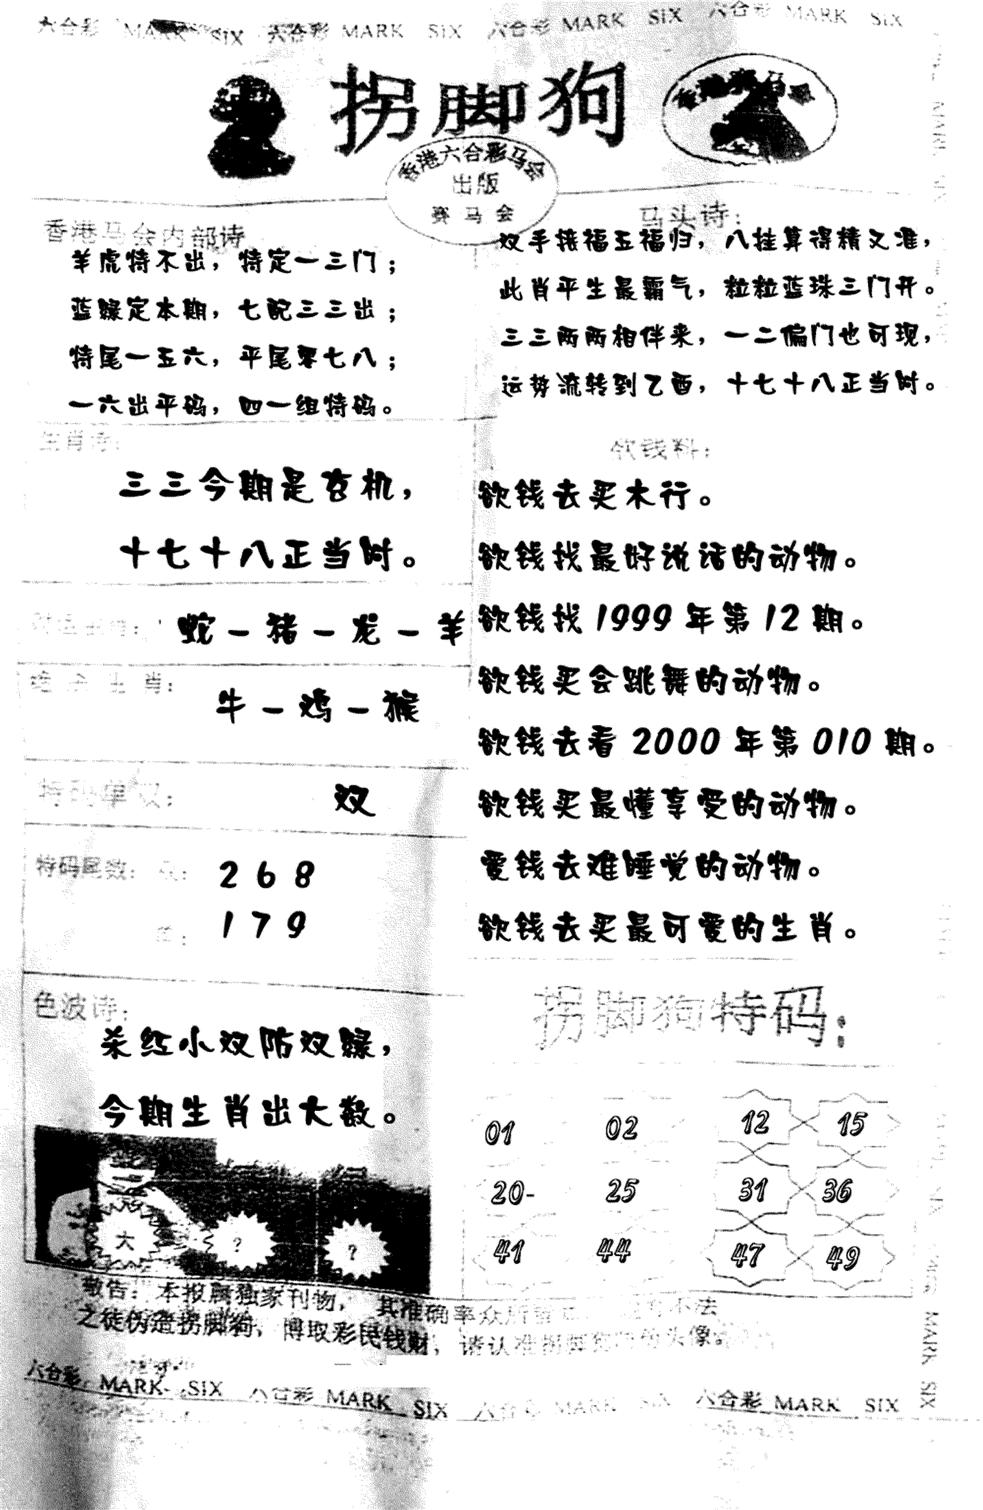 六合彩 MARK SIX 六合彩 MARK SIX 六合彩 MARK SIX 六合彩 MARK SIX
拐脚狗
香港赛马会
香港六合彩马会
出版
赛马会
香港马会内部诗
羊虎特不出，特定一三门；
蓝绿定本期，七配三三出；
特尾一五六，平尾零七八；
一六出平码，四一组特码。
马头诗：
双手接福五福归，八挂算得精又准，
此肖平生最霸气，粒粒蓝珠三门开。
三三两两相伴来，一二偏门也可现，
运势流转到乙酉，十七十八正当时。
生肖诗：
三三今期是玄机，
十七十八正当时。
蛇－猪－龙－羊
绝杀生肖：
牛－鸡－猴
特码单双：
双
特码尾数：双： 2 6 8
单： 1 7 9
色波诗：
杀红小双防双绿，
今期生肖出大数。
大 ? ?
欲钱料：
欲钱去买木行。
欲钱找最好说话的动物。
欲钱找 1999 年第 12 期。
欲钱买会跳舞的动物。
欲钱去看 2000 年第 010 期。
欲钱买最懂享受的动物。
爱钱去难睡觉的动物。
欲钱去买最可爱的生肖。
拐脚狗特码：
01 02 12 15
20- 25 31 36
41 44 47 49
敬告：本报属独家刊物，其准确率众所 不法
之徒伪造拐脚狗，博取彩民钱财，请认准拐脚狗 头像。
六合彩 MARK SIX 六合彩 MARK SIX 六合彩 MARK SIX 六合彩 MARK SIX
MARK SIX